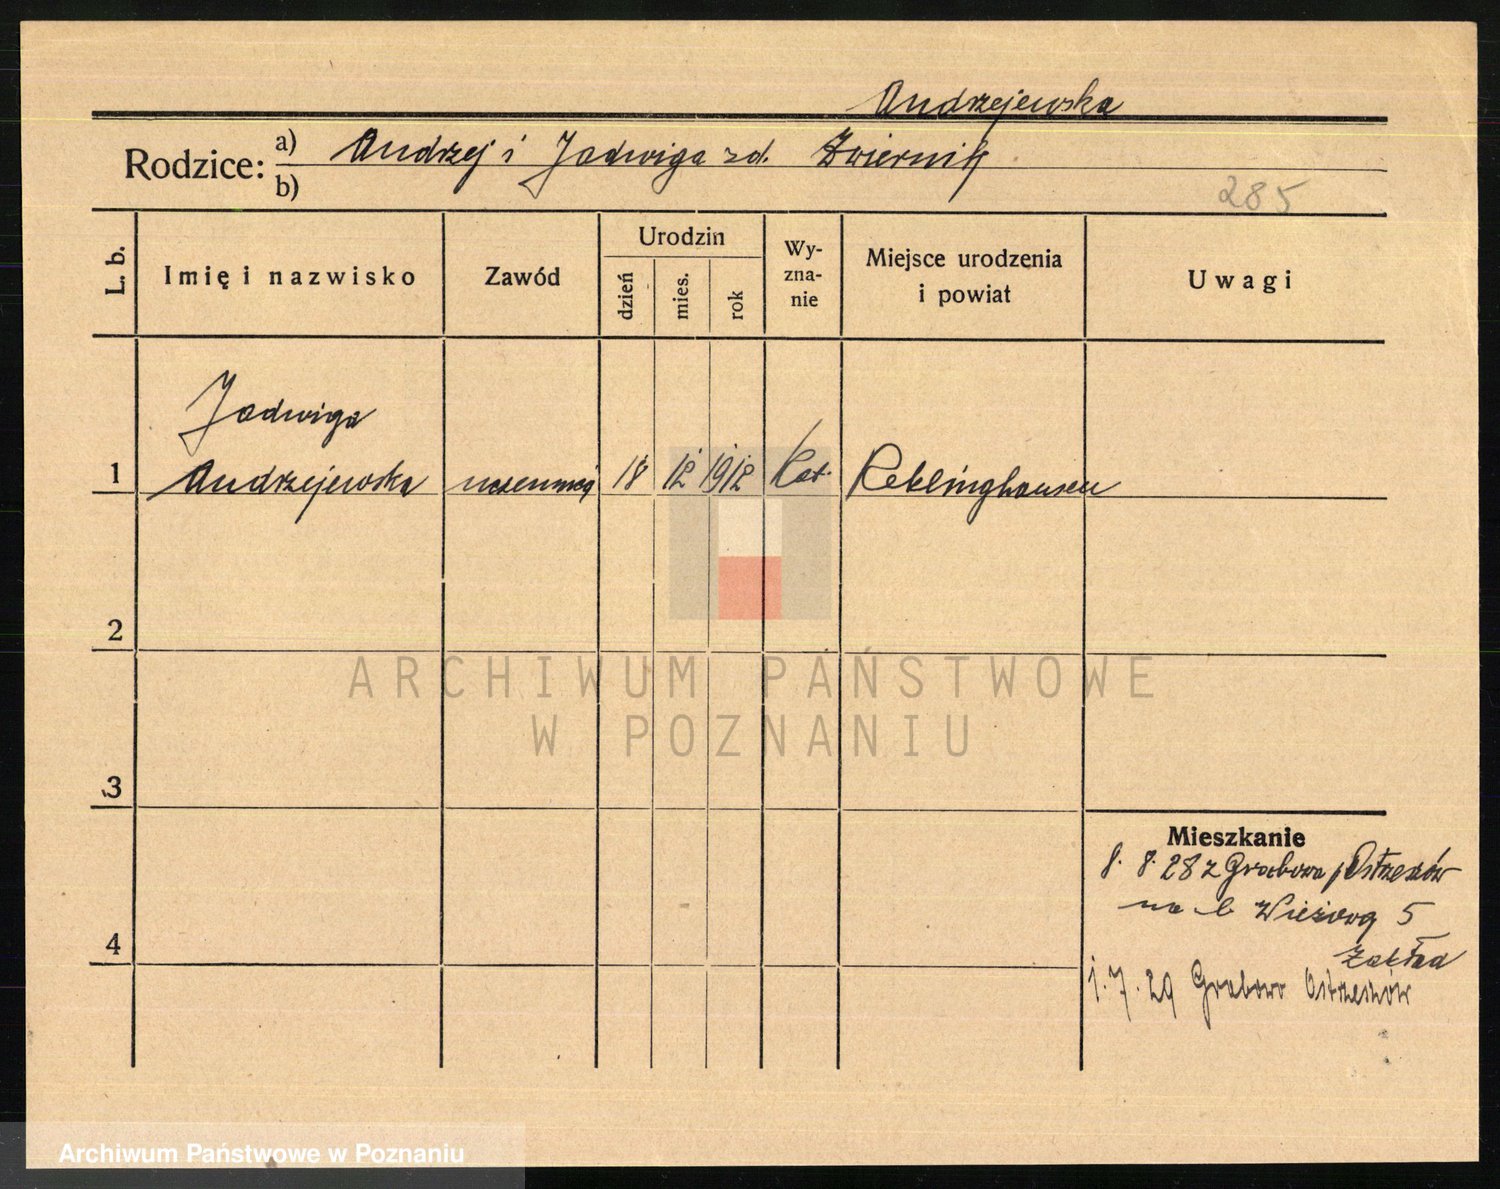 Andrzejewska
Rodzice: a) Andrzej i Jadwiga zd. Zwiernik
b)
285
L. b.
Imię i nazwisko
Zawód
Urodzin
dzień
mies.
rok
Wy-
zna-
nie
Miejsce urodzenia
i powiat
Uwagi
Jadwiga
1 Andrzejewska 18 12 1912 Kat. Reklinghausen
2
3
4
Mieszkanie
8. 8. 28 z Grabowa p/Ostrzeszów
na Wieżową 5
Zakład
1. 7. 29 Grabowo Ostrzeszów
ARCHIWUM PAŃSTWOWE
W POZNANIU
Archiwum Państwowe w Poznaniu